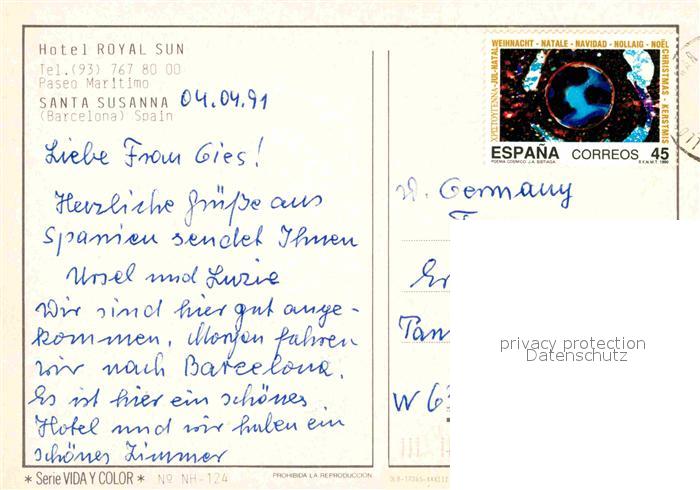 Hotel ROYAL SUN
Tel.(93) 767 80 00
Paseo Maritimo
SANTA SUSANNA 04.04.91
(Barcelona) Spain
Liebe Frau Gies!
Herzliche Grüße aus
Spanien sendet Ihnen
Ursel und Luzie
Wir sind hier gut ange-
kommen. Morgen fahren
wir nach Barcelona.
Es ist hier ein schönes
Hotel und wir haben ein
schönes Zimmer
* Serie VIDA Y COLOR * Nº NH-124
PROHIBIDA LA REPRODUCCION
WEIHNACHT - NATALE - NAVIDAD - NOLLAIG - NOËL
CHRISTMAS - KERSTMIS
ΧΡΙΣΤΟΥΓΕΝΝΑ-JUL-NATAL
ESPAÑA CORREOS 45
POEMA COSMICO J.A. SISTIAGA F.N.M.T. 1990
W. Germany
Er
Tan
W 6
privacy protection
Datenschutz